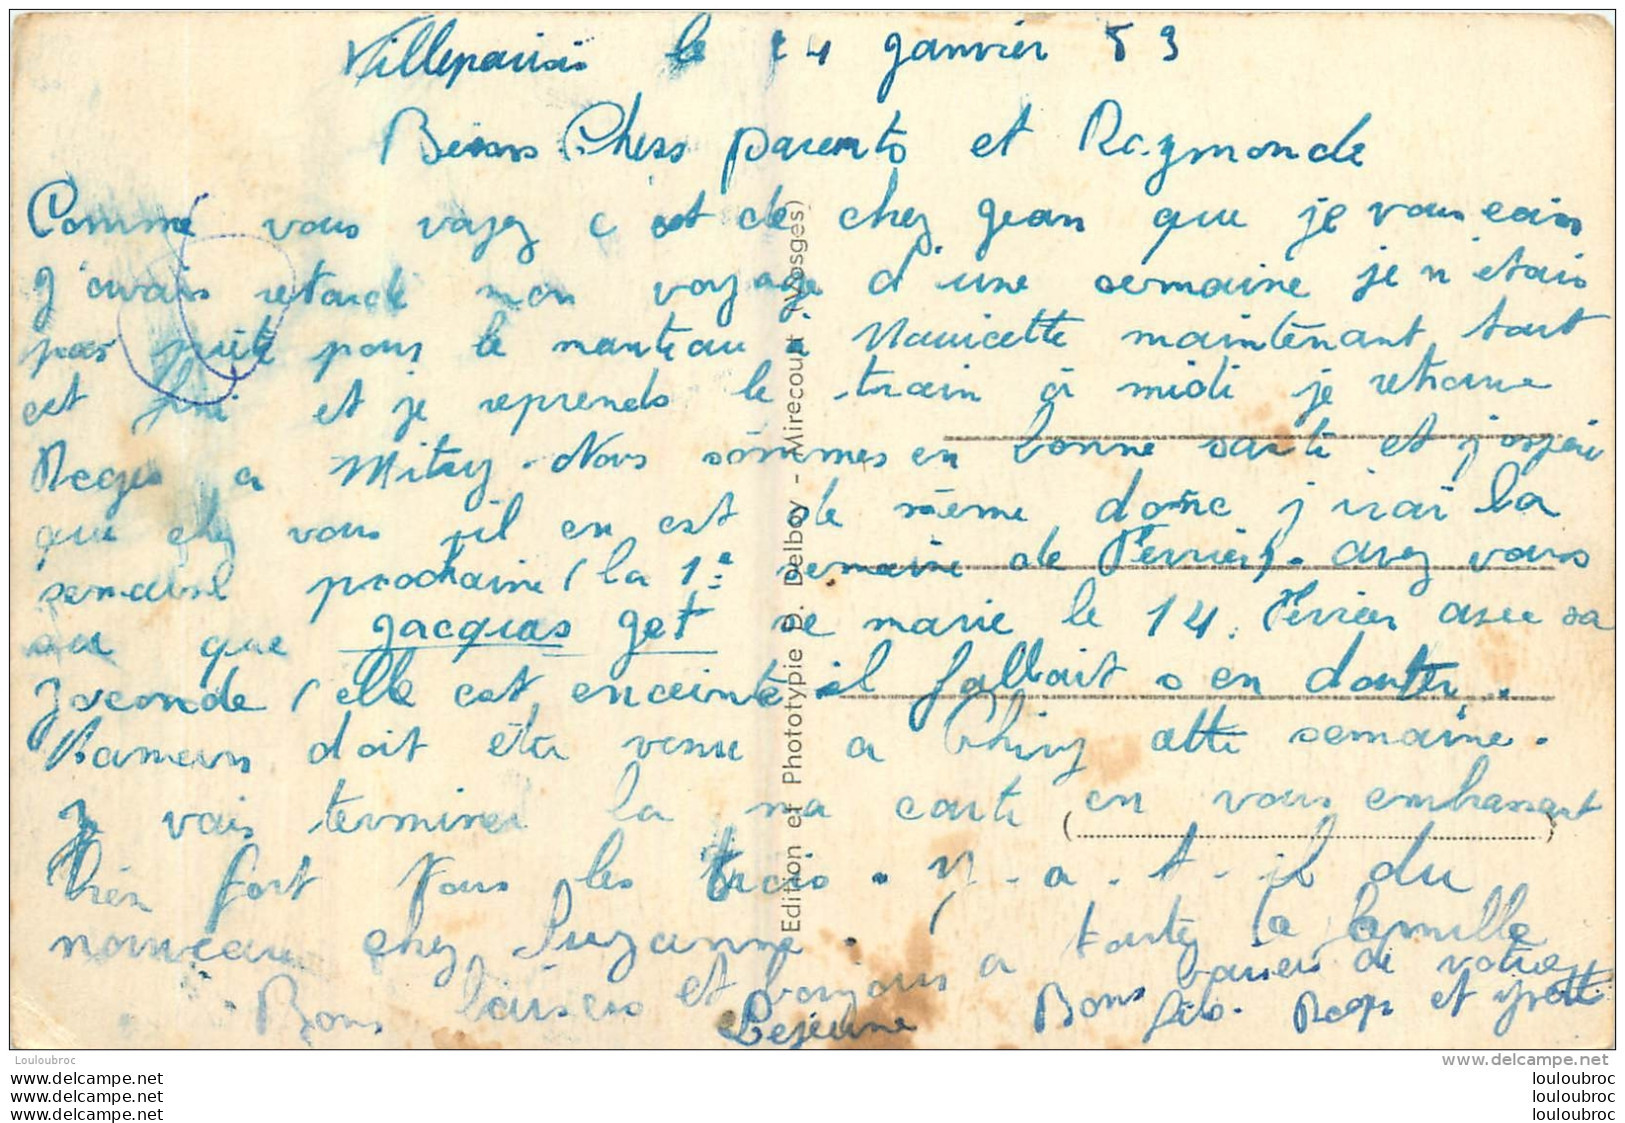 Villeparisis le 24 janvier 53
Biens Chers parents et Raymonde
Comme vous voyez c est de chez Jean que je vous écris
J'avais retardé mon voyage d'une semaine je n'étais
pas prête pour le manteau a Mauricette maintenant tout
est fini et je reprends le train à midi je retrouve
Roger a Mitry. Nous sommes en bonne santé et j'espère
que chez vous il en est de même donc j irai la
semaine prochaine (la 1ère semaine de Février). avez vous
su que Jacques Jet se marie le 14 Février avec sa
Joconde (elle est enceinte il fallait s en douter.
doit être venu a cette semaine.
Je vais terminer la ma carte en vous embrassant
bien fort tous les trois. Y-a-t-il du
nouveau chez Suzanne. a toute la famille
Bons baisers et bonjour
Lejeune
Bons baisers de votre
fils. Roger et Yvette
Edition et Phototypie D. Delboy - Mirecourt (Vosges)
Louloubroc
www.delcampe.net
www.delcampe.com
www.delcampe.com
www.delcampe.com
louloubroc
louloubroc
louloubroc